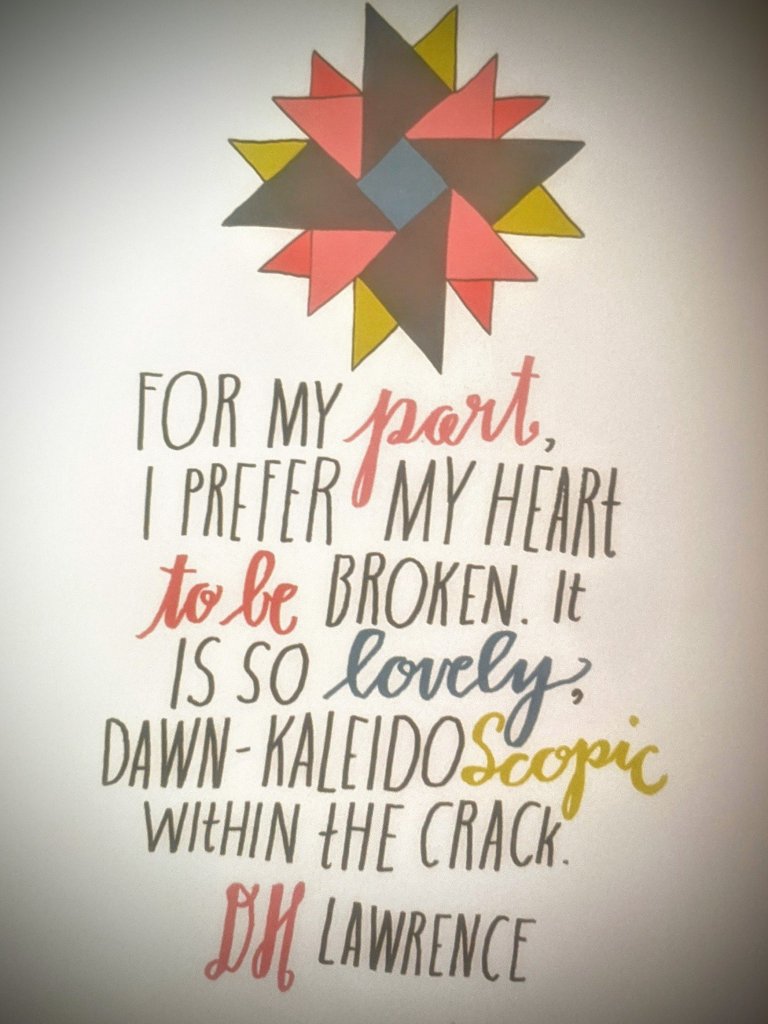 FOR MY part,
I PREFER MY HEARt
to be BROKEN. It
IS SO lovely,
DAWN-KALEIDOScopic
WItHIN tHE CRACK.
DH LAWRENCE